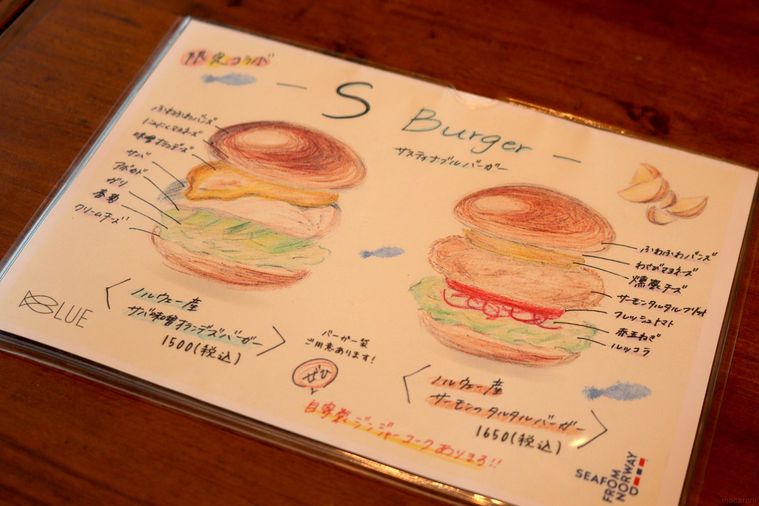 限定コラボ
- S Burger -
サスティナブルバーガー
ふわふわバンズ
味噌オランデーズ
サバ
アボカド
ガリ
春菊
クリームチーズ
ふわふわバンズ
わさびマヨネーズ
燻製チーズ
サーモンタルタルフリット
フレッシュトマト
赤玉ねぎ
ルッコラ
BLUE
ノルウェー産
サバ味噌オランデーズバーガー
1500(税込)
バーガー袋
ご用意あります!
ぜひ
自家製ジンジャーコークあります!!
ノルウェー産
サーモンタルタルバーガー
1650(税込)
SEAFOOD
FROM
NORWAY
macaroni